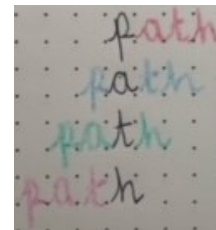 path
path
path
path